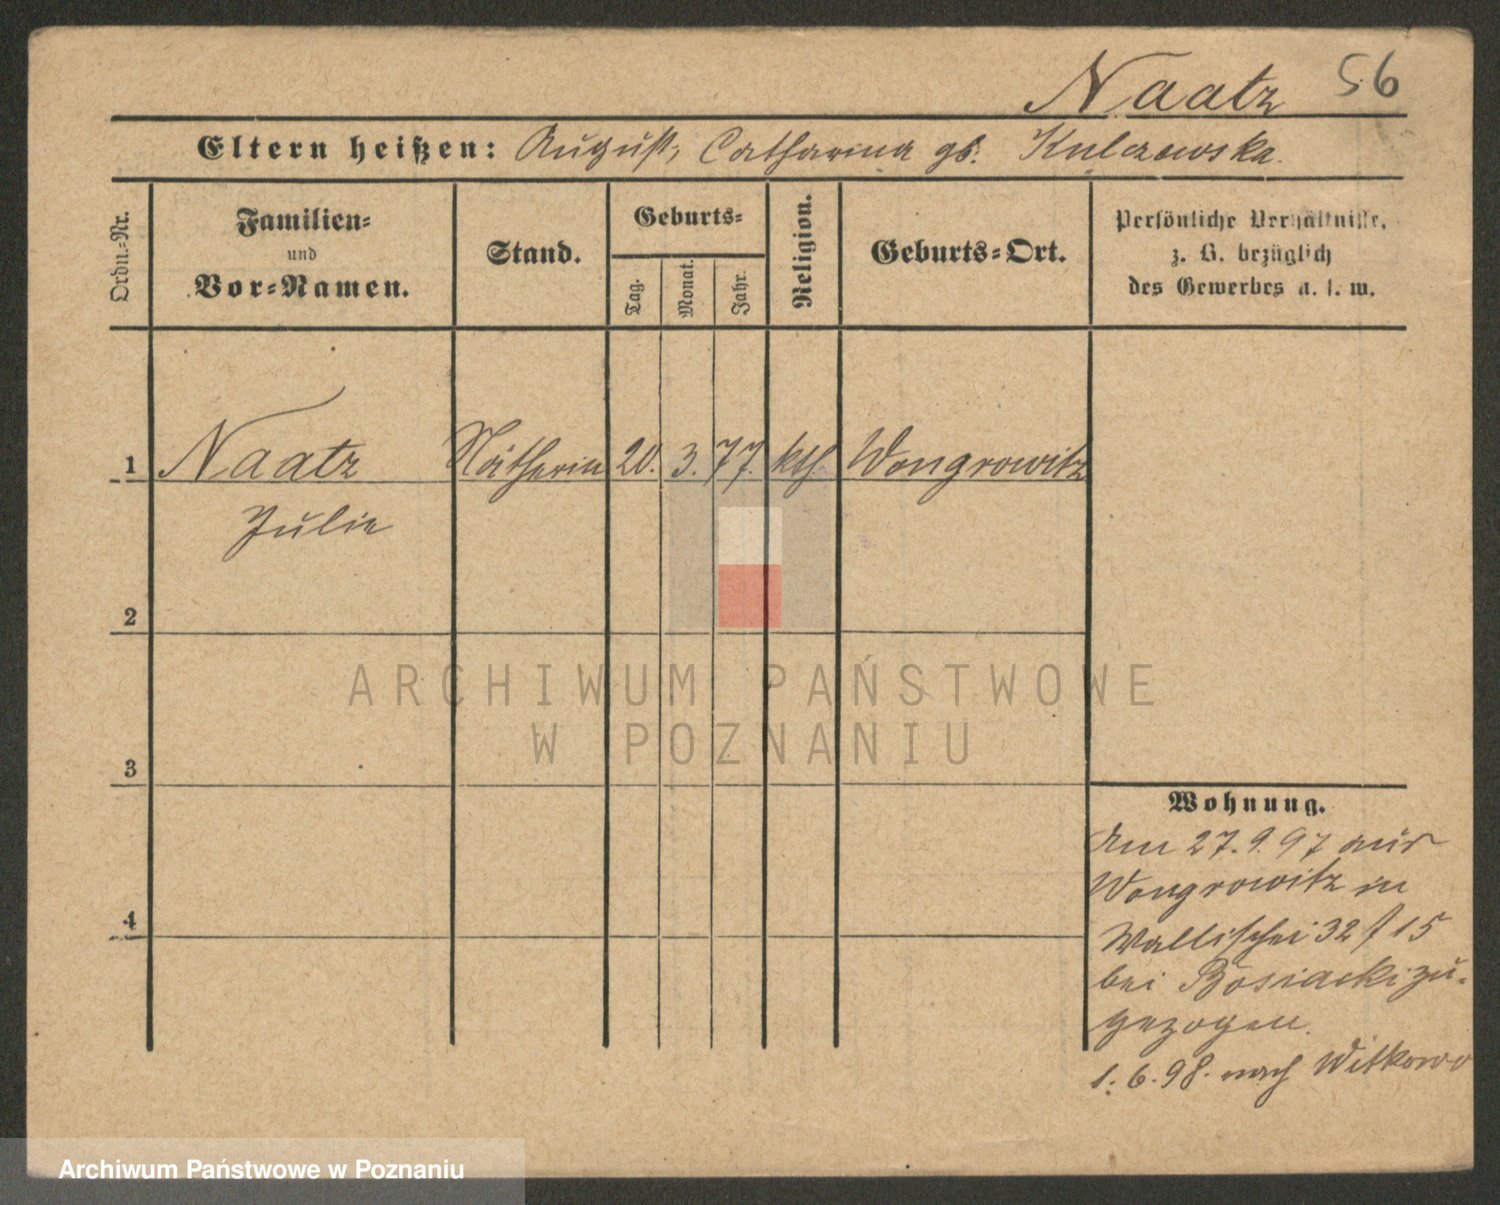 Naatz 56
Eltern heißen: August, Catharina gb. Kulczewska.
Ordn.-Nr.
Familien-
und
Vor-Namen.
Stand.
Geburts-
Tag.
Monat.
Jahr.
Religion.
Geburts-Ort.
Persönliche Verhältnisse,
z. B. bezüglich
des Gewerbes u. s. w.
1 Naatz Nätherin 20. 3. 77. kth. Wongrowitz
Julie
2
3
4
ARCHIWUM PAŃSTWOWE
W POZNANIU
Wohnung.
Am 27.9.97 aus
Wongrowitz in
Wallischei 32/15
bei Bosiacki zu-
gezogen.
1.6.98. nach Witkowo
Archiwum Państwowe w Poznaniu